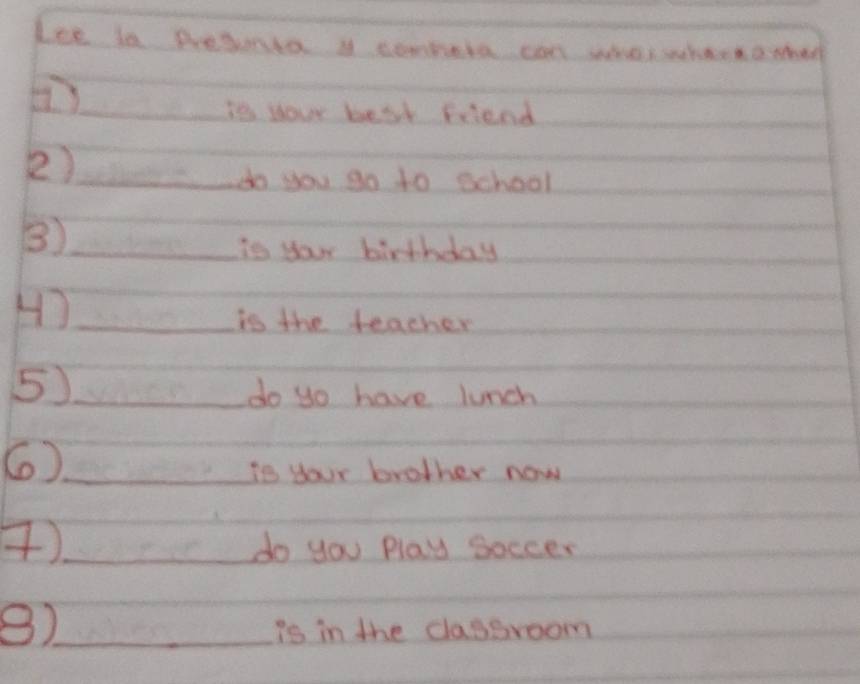 Lee la Pregunta y completa con who, where o when
1) is your best friend
2) do you go to school
3) is your birthday
4) is the teacher
5) when do yo have lunch
6) is your brother now
7) do you Play Soccer
8) when is in the classroom